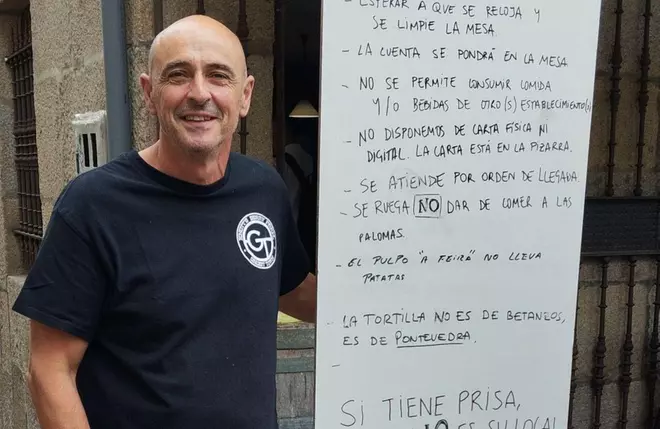 ESPERAR A QUE SE RECOJA Y
SE LIMPIE LA MESA.
- LA CUENTA SE PONDRÁ EN LA MESA.
- NO SE PERMITE CONSUMIR COMIDA
Y/O BEBIDAS DE OTRO(S) ESTABLECIMIENTO(S)
- NO DISPONEMOS DE CARTA FÍSICA NI
DIGITAL. LA CARTA ESTÁ EN LA PIZARRA.
- SE ATIENDE POR ORDEN DE LLEGADA.
- SE RUEGA NO DAR DE COMER A LAS
PALOMAS.
- EL PULPO "A FEIRA" NO LLEVA
PATATAS
- LA TORTILLA NO ES DE BETANZOS,
ES DE PONTEVEDRA.
-
SI TIENE PRISA,
NO ES SU LOCAL
GT